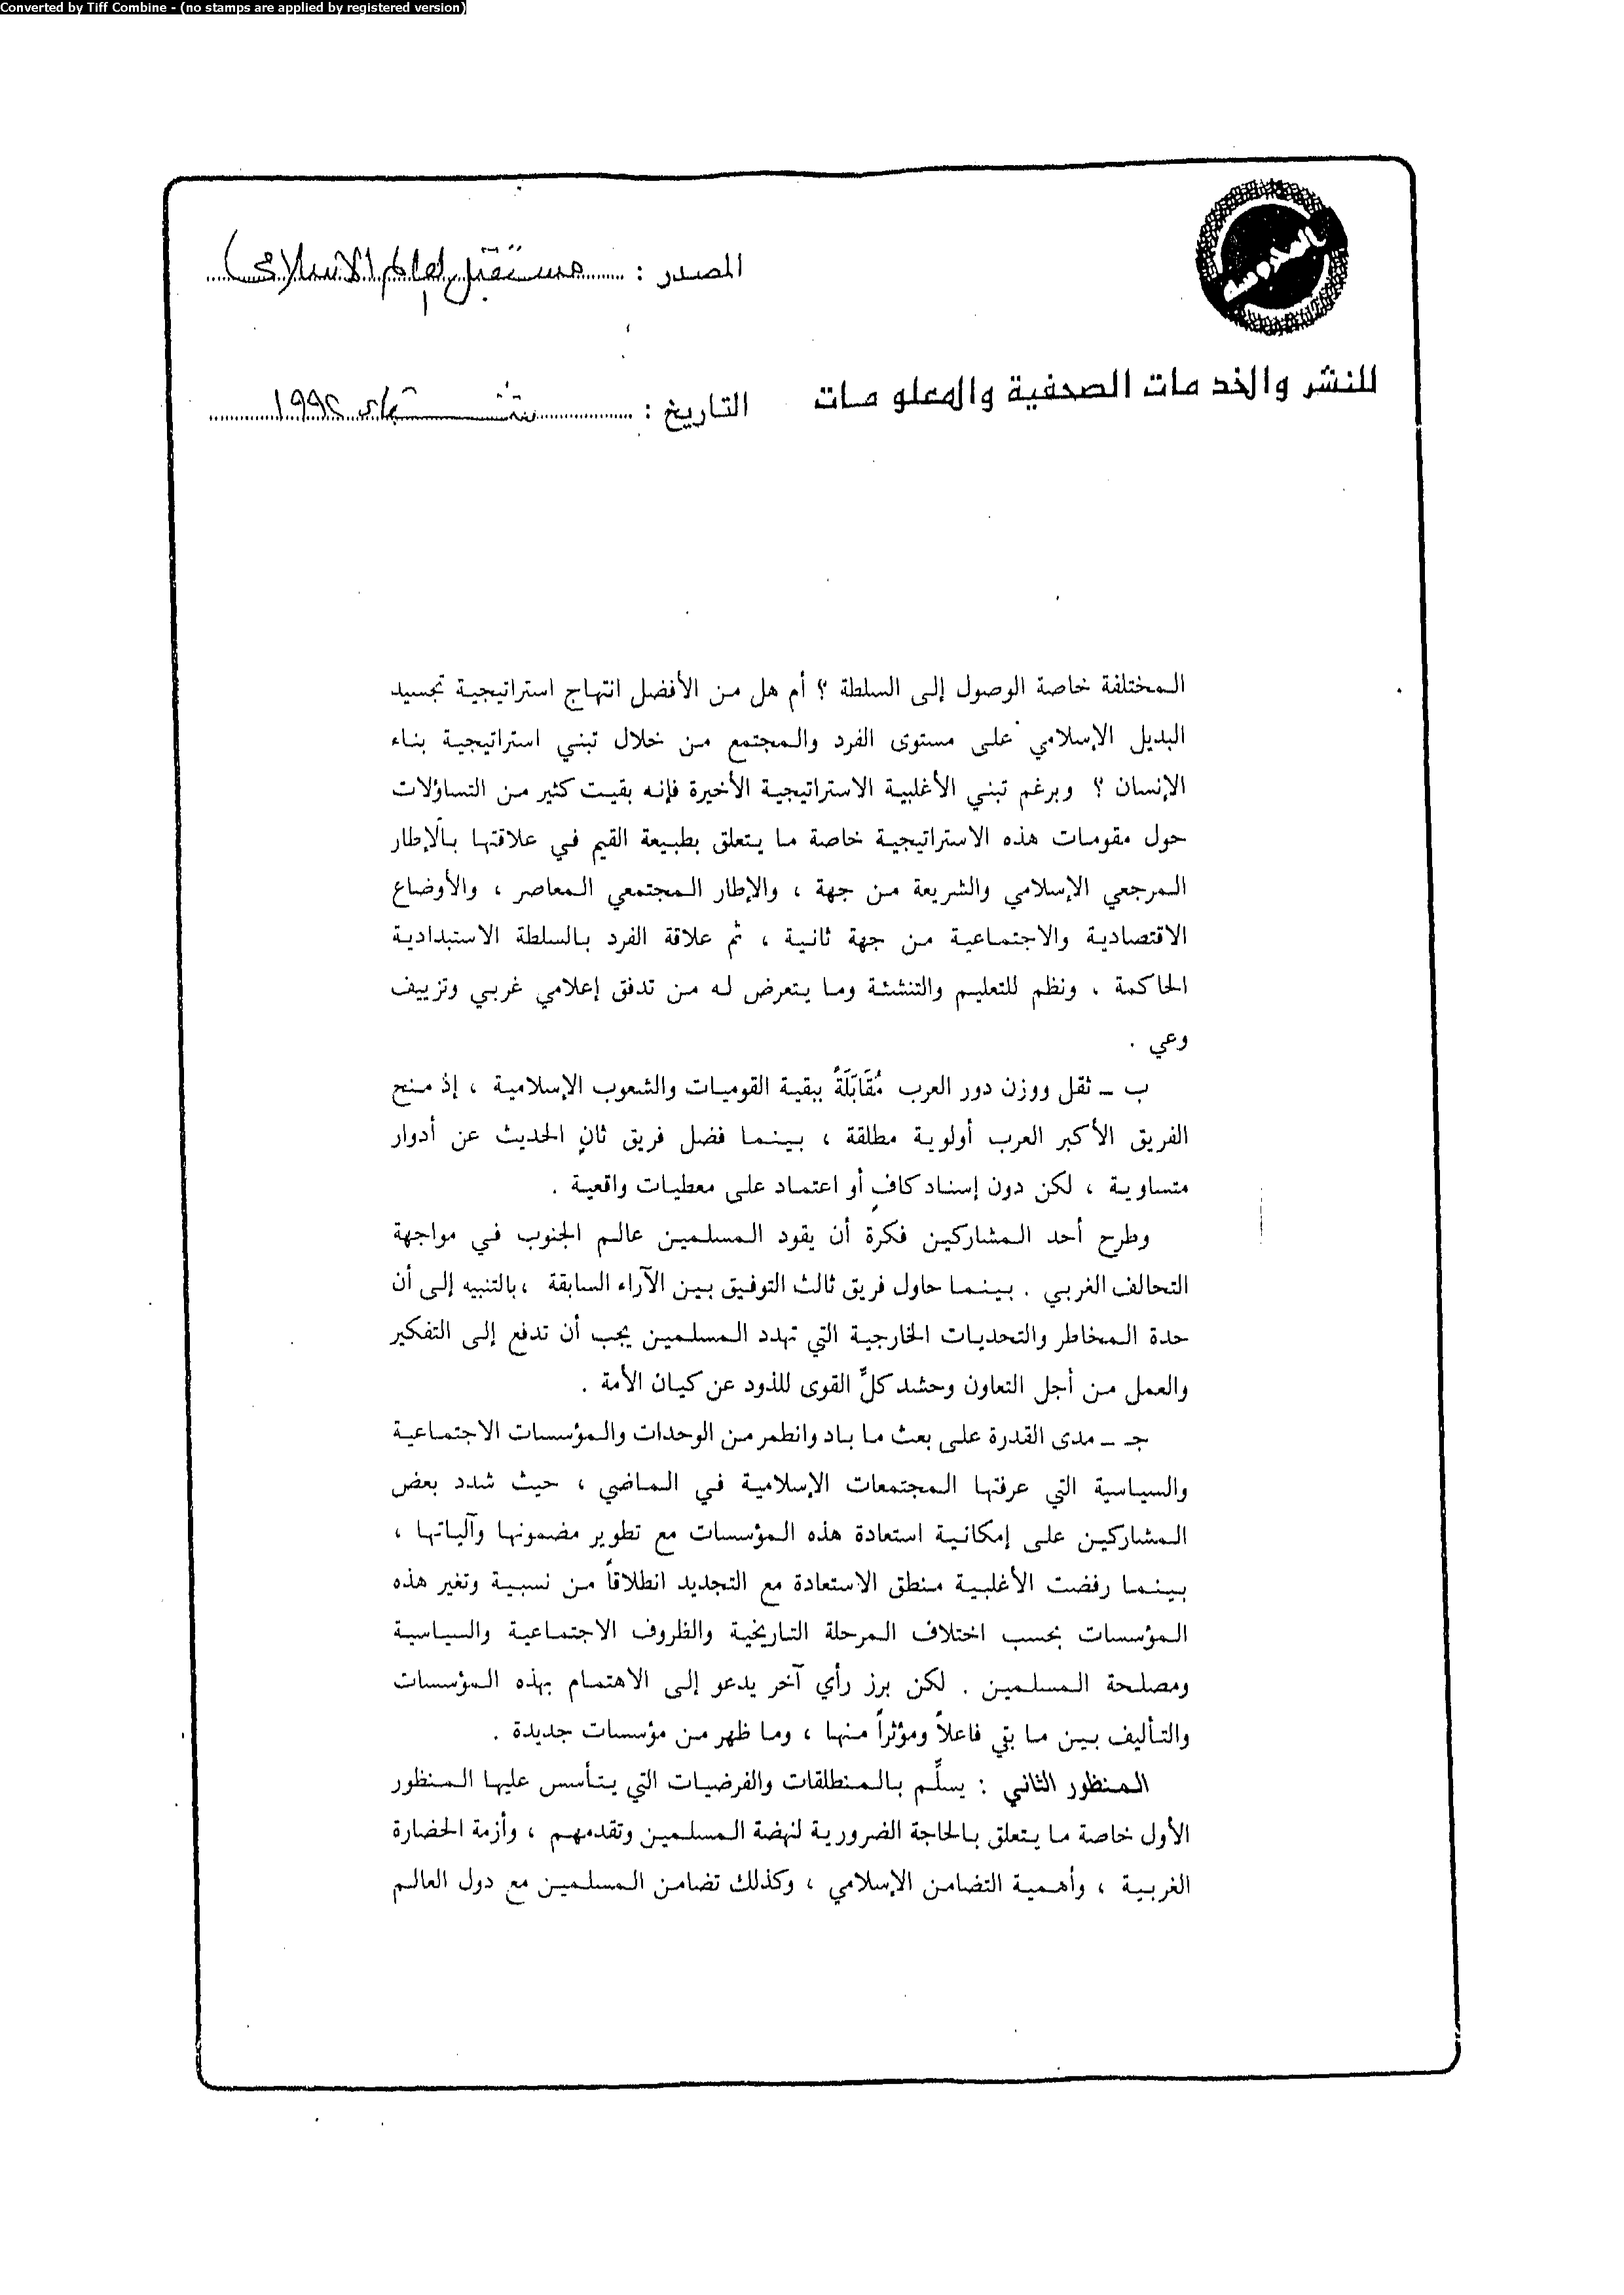 Converted by Tiff Combine - (no stamps are applied by registered version)
المصدر : مستقبل العالم الإسلامي
للنشر والخدمات الصحفية والمعلومات
التاريخ : شتاء ١٩٩٢
المختلفة خاصة الوصول إلى السلطة ؟ أم هل من الأفضل انتهاج استراتيجية تجسيد
البديل الإسلامي على مستوى الفرد والمجتمع من خلال تبني استراتيجية بناء
الإنسان ؟ وبرغم تبني الأغلبية الاستراتيجية الأخيرة فإنه بقيت كثير من التساؤلات
حول مقومات هذه الاستراتيجية خاصة ما يتعلق بطبيعة القيم في علاقتها بالإطار
المرجعي الإسلامي والشريعة من جهة ، والإطار المجتمعي المعاصر ، والأوضاع
الاقتصادية والاجتماعية من جهة ثانية ، ثم علاقة الفرد بالسلطة الاستبدادية
الحاكمة ، ونظم للتعليم والتنشئة وما يتعرض له من تدفق إعلامي غربي وتزييف
وعي .
ب ــ ثقل ووزن دور العرب مُقَابَلَةً ببقية القوميات والشعوب الإسلامية ، إذ منح
الفريق الأكبر العرب أولوية مطلقة ، بينما فضل فريق ثانٍ الحديث عن أدوار
متساوية ، لكن دون إسناد كافٍ أو اعتماد على معطيات واقعية .
وطرح أحد المشاركين فكرة أن يقود المسلمين عالم الجنوب في مواجهة
التحالف الغربي . بينما حاول فريق ثالث التوفيق بين الآراء السابقة ، بالتنبيه إلى أن
حدة المخاطر والتحديات الخارجية التي تهدد المسلمين يجب أن تدفع إلى التفكير
والعمل من أجل التعاون وحشد كلِّ القوى للذود عن كيان الأمة .
جـ ــ مدى القدرة على بعث ما باد وانطمر من الوحدات والمؤسسات الاجتماعية
والسياسية التي عرفتها المجتمعات الإسلامية في الماضي ، حيث شدد بعض
المشاركين على إمكانية استعادة هذه المؤسسات مع تطوير مضمونها وآلياتها ،
بينما رفضت الأغلبية منطق الاستعادة مع التجديد انطلاقاً من نسبية وتغير هذه
المؤسسات بحسب اختلاف المرحلة التاريخية والظروف الاجتماعية والسياسية
ومصلحة المسلمين . لكن برز رأي آخر يدعو إلى الاهتمام بهذه المؤسسات
والتأليف بين ما بقي فاعلاً ومؤثراً منها ، وما ظهر من مؤسسات جديدة .
المنظور الثاني : يسلِّم بالمنطلقات والفرضيات التي يتأسس عليها المنظور
الأول خاصة ما يتعلق بالحاجة الضرورية لنهضة المسلمين وتقدمهم ، وأزمة الحضارة
الغربية ، وأهمية التضامن الإسلامي ، وكذلك تضامن المسلمين مع دول العالم